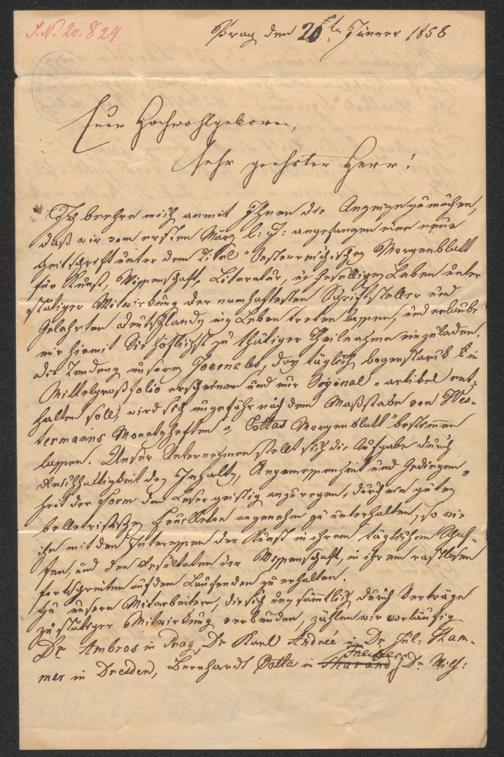 J.N. 20.824
Prag den 20ten Jänner 1858
Euer Hochwohlgeboren,
Sehr geehrter Herr!
Ich beehre mich anmit Ihnen die Anzeige zu machen,
daß wir vom ersten März l: J: angefangen eine neue
Zeitschrift unter dem Titel "Oesterreichisches Morgenblatt
für Kunst, Wissenschaft, Literatur, u geselliges Leben unter
stätiger Mitwirkung der namhaftesten Schriftsteller und
Gelehrten Deutschlands ins Leben treten lassen, und erlaube
mir hiemit Sie höflichst zu thätiger Theilnahme einzuladen.
Die Tendenz unseres Journales, das täglich bogenstark in
Mittelgroßfolio erscheinen und nur Original-artikel ent-
halten soll, wird sich ungefähr nach dem Maßstabe von Wes-
termanns Monatsheften u Cottas Morgenblatt bestimmen
lassen. Unser Unternehmen stellt sich die Aufgabe durch
Reichhaltigkeit des Inhalts, Angemessenheit und Gediegen-
heit der Form den Leser geistig anzuregen, durch ein gutes
belletristisches Feuilleton angenehm zu unterhalten, so wie
ihn mit den Interessen der Kunst in ihrem täglichen Schaf-
fen, und den Resultaten der Wissenschaft, in ihrem rastlosen
Fortschreiten auf dem Laufenden zu erhalten.
Zu unsern Mitarbeitern, die sich uns sämtlich durch Verträge
zu stätiger Mitwirkung verbunden, zählen wir vorläufig
Dr Ambros in Prag, Dr Karl Andree u Dr Jul: Ham-
mer in Dresden, Bernhardt Cotta in Tharand Freiberg, Dr.